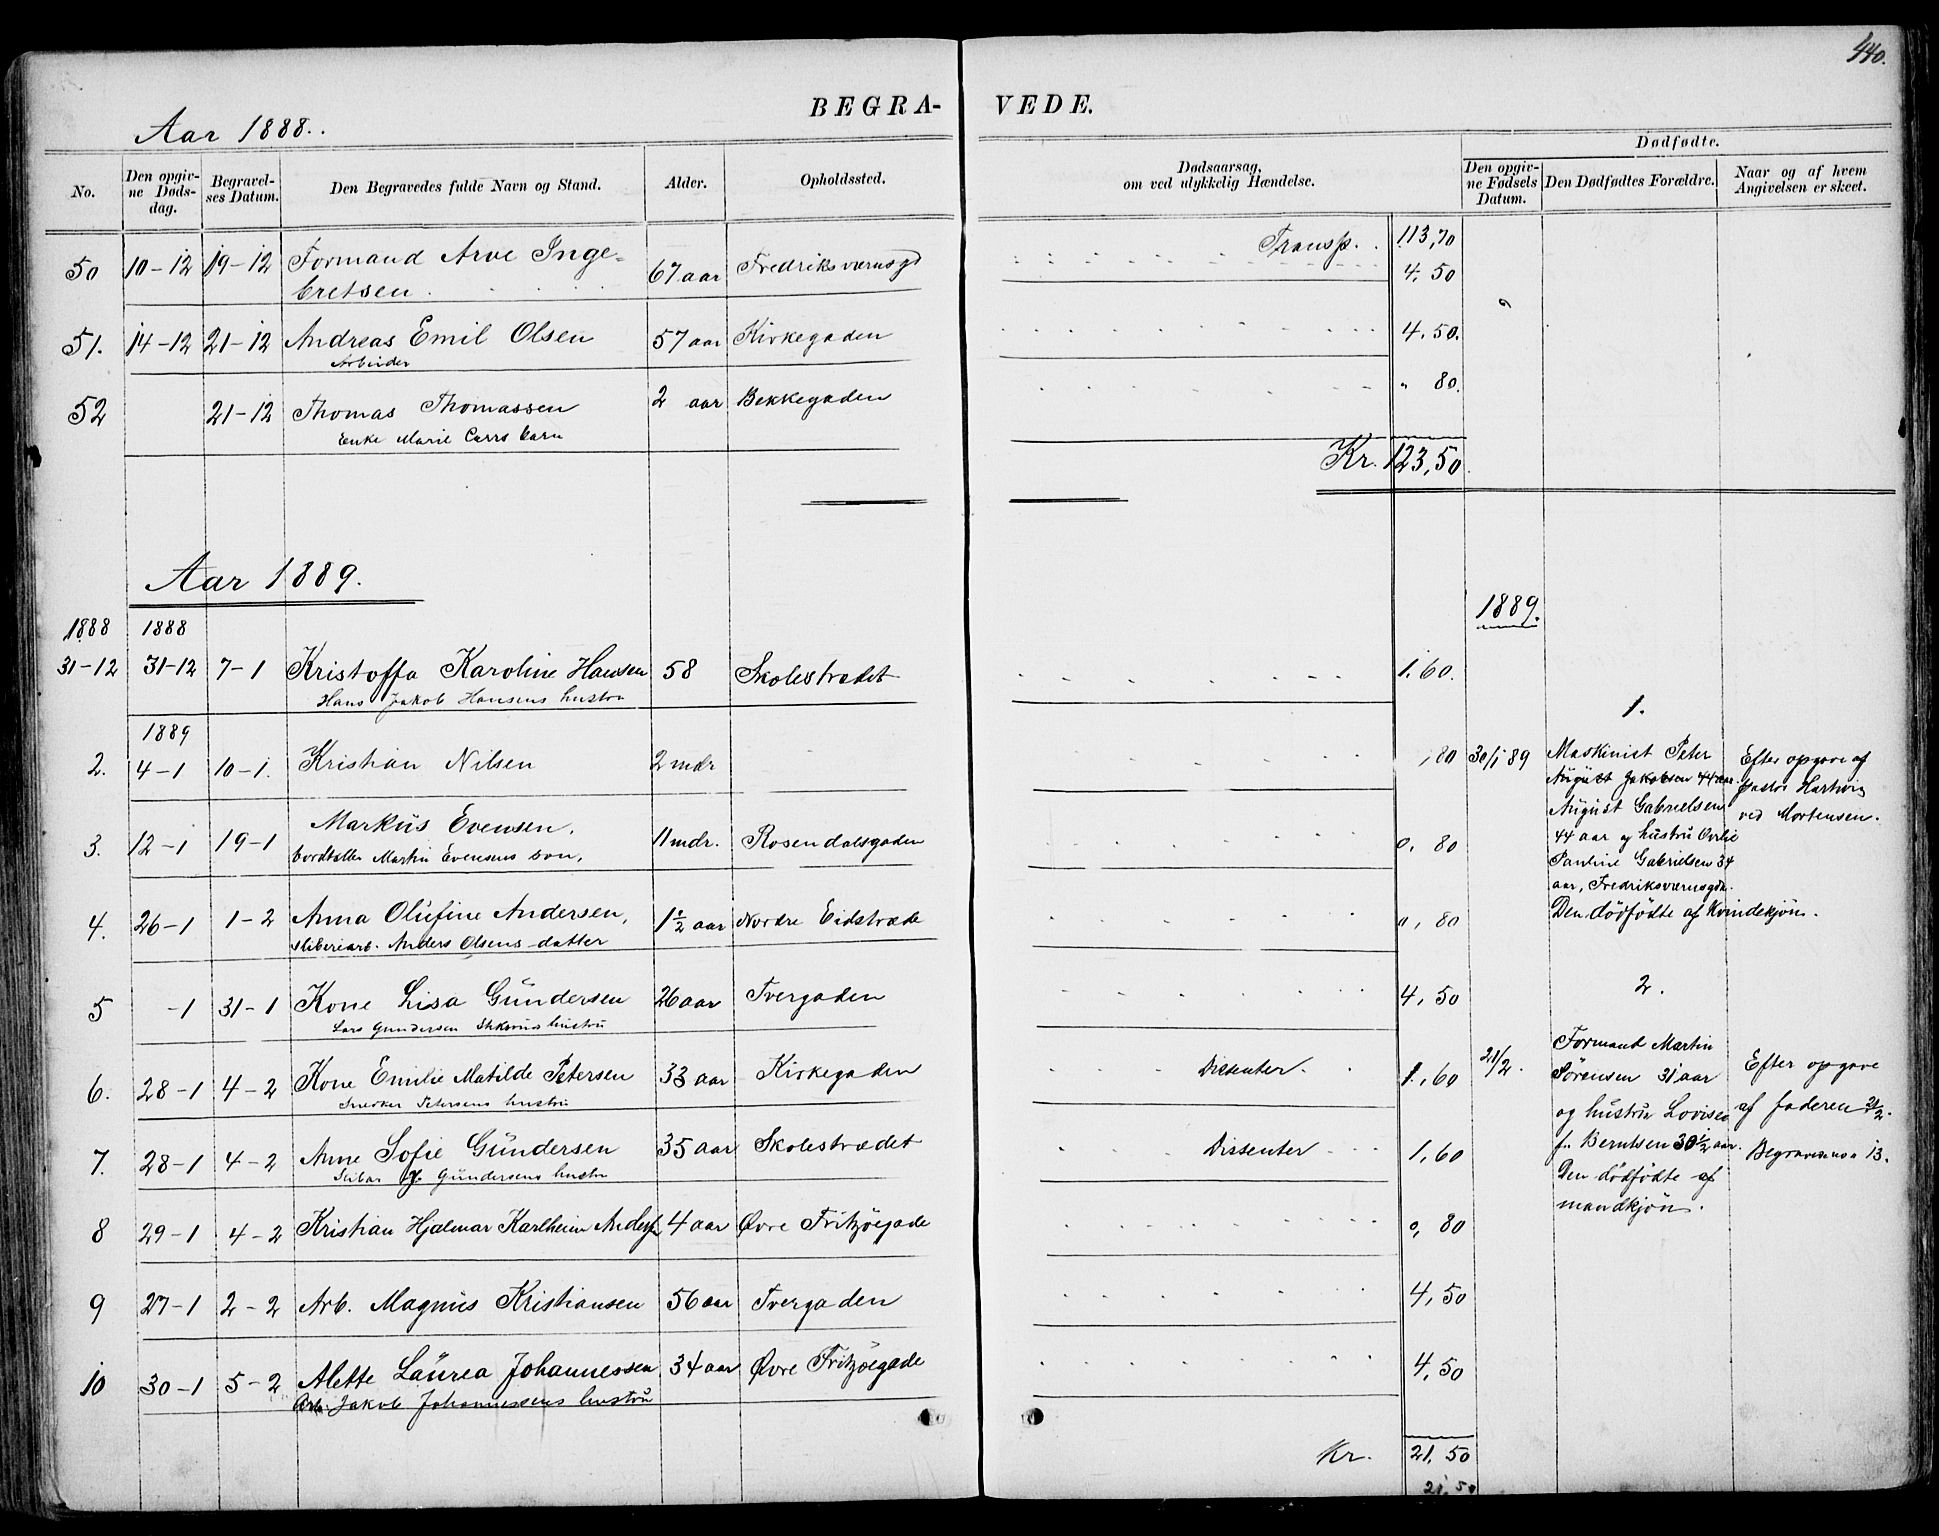 440.
BEGRA- VEDE.
Aar 1888.
No. | Den opgivne Dødsdag. | Begravelses Datum. | Den Begravedes fulde Navn og Stand. | Alder. | Opholdssted. | Dødsaarsag, om ved ulykkelig Hændelse. | Dødfødte. | Den opgivne Fødsels Datum. | Den Dødfødtes Forældre. | Naar og af hvem Angivelsen er skeet.
Transp. 113,70
50 10-12 19-12 Formand Arve Inge= 67 aar Fredriksværnsgd 4,50
bretsen
51. 14-12 21-12 Andreas Emil Olsen 57 aar Kirkegaden 4,50.
Arbeider
52 21-12 Thomas Thomassen 2 aar Bekkegaden " 80.
Enke Marie barn
Kr. 123,50
Aar 1889.
1888 1888
31-12 31-12 7-1 Kristoffa Karoline Hansen 58 Skolestrædet 1,60.
Hans Jakob Hansens hustru
1889
2. 4-1 10-1. Kristian Nilsen 2 mdr ,80
3. 12-1 19-1 Markus Evensen, 11 mdr. Rosendalsgaden 0,80
Martin Evensens søn,
4. 26-1 1-2 Anna Olufine Andersen, 1½ aar Nordre Eidstræde ",80
Sliberiarb. Anders Olsens datter
5 -1 31-1 Kone Lisa Gundersen 26 aar Tvergaden 4,50
Lars Gundersen hustru
6. 28-1 4-2 Kone Emilie Matilde Petersen 33 aar Kirkegaden Disenter 1,60
Snedker Petersens hustru
7. 28-1 4-2 Anne Sofie Gundersen 35 aar Skolestrædet Dissenter 1,60
Gundersens hustru
8 29-1 4-2 Kristian Hjalmar Karlheim 4 aar Øvre Fritzøegade 0,80
9 27-1 2-2 Arb. Magnus Kristiansen 56 aar Tvergaden 4,50
10 30-1 5-2 Alette Laurea Johannessen 34 aar Øvre Fritzøegade 4,50
Arb. Jakob Johannessens hustru
Kr. 21,50
21,50
1889.
1.
30/1 89 Maskinist Peter
August Jakobsen 44 aar
August Gabrielsen
44 aar og hustru
Pauline Gabrielsen 34
aar, Fredriksværnsgdn.
Den dødfødte af Kvindekjøn.
Efter opgave af
Hartvig
ved Mortensen.
2.
21/2. Formand Martin
Sørensen 31 aar
og hustru Lovise
f. Berntsen 30½ aar.
Den dødfødte af
mandkjøn.
Efter opgave
af faderen 21/2.
13.